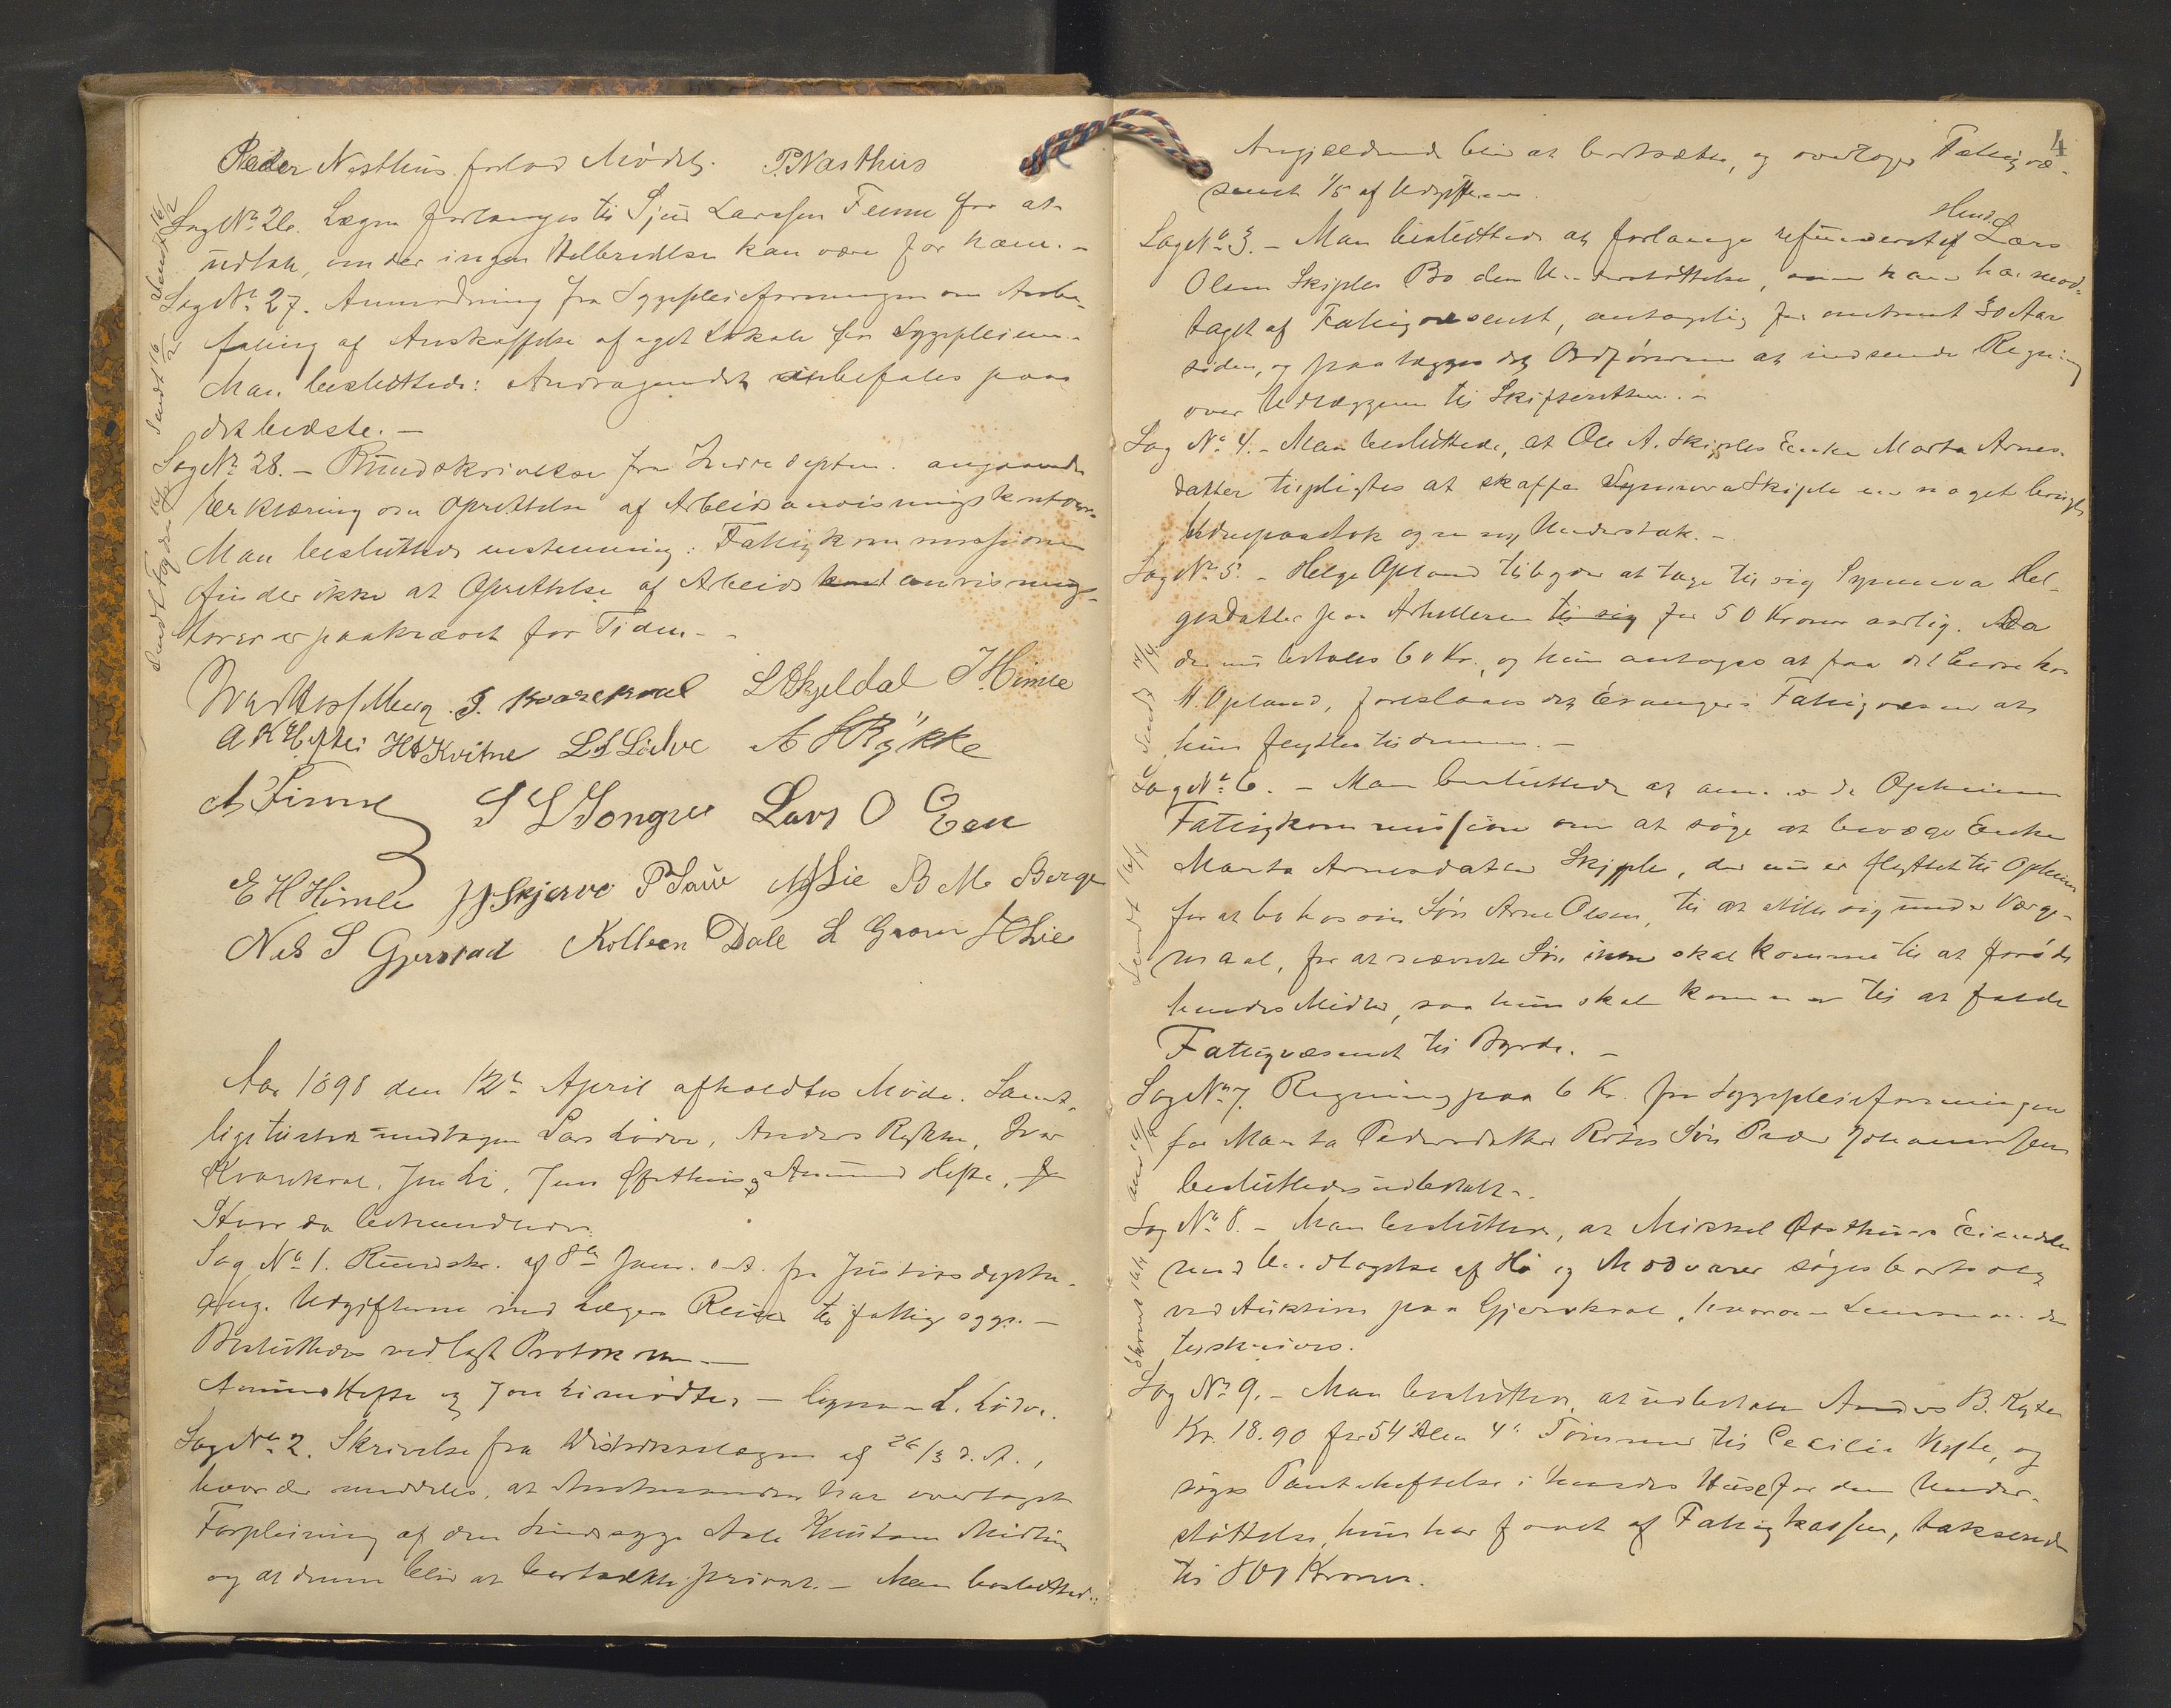 Peder Nesthus forlod Mødet. P. Næsthus
Sag No 26. Lægen forlanges til Sjur Larssen Fenne for at
udtale, om der ingen Helbredelse kan være for ham. –
Sag No 27. Anmodning fra Sygepleieforeningen om Anbe-
faling af Anskaffelse af eget Lokale for Sygepleien. –
Man besluttede: Andragendet anbefales paa
det bedste. –
Sag No 28. – Rundskrivelse fra Indredeptem. angaaende
Erklæring om Oprettelse af Arbeidsanvisningskontorer.
Man besluttede enstemmig: Fattigkommissionen
finder ikke at Oprettelse af Arbeids anvisnings-
torer er paakrævet for Tiden. –
J. Kvarekval L Skjeldal J Himle
A K Hefte H O Kvitne L L Lødve A Rykke
A Finne S L Gongeu Lars O Een
E H Himle Skjerve P Saue Lie B M Berge
Nils S Gjerstad Kolbein Dale L Graue Lie
Sendt 16/2
Sendt 16/2
Sendt Fogden 16/2
Aar 1898 den 12te April afholdtes Møde. Samt-
lige tilstede undtagen Lars Lødve, Anders Rykke, Ivar
Kvarekval, Jon Li, Jens og Amund Hefte,
Hvor da behandledes:
Sag No 1. Rundskr. af 8de Janr. d.A. fra Justisdeptm.
ang. Udgifterne ved Lægers Reiser til fattige syge. –
Besluttedes vedlagt Protokollen. –
Amund Hefte og Jon Li mødte. – L. Lødve.
Sag No 2. Skrivelse fra Distriktslægen af 26/3 d.A.,
hvor der meddeles, at Amtmanden har overtaget
Forpleining af den sindssyge Knutsen Midtun
og at denne blir at bortsætte privat. – Man besluttede:
4
Angjældende blir at bortsætte, og overtager Fattigvæ-
senet 1/5 af Udgifterne.
Sag No 3. – Man besluttede at forlange refunderet af Lars
Olsen Skiples Bo den Understøttelse, han har mod-
taget af Fattigvæsenet, antagelig for omtrent 30 Aar
siden, og paalægges det Ordføreren at indsende Regning
over Udlæggene til Skifteretten. –
Sag No 4. – Man besluttede, at Ole A. Skiples Enke Marta Arnes-
datter tilpligtes at skaffe Synneva Skiple en noget brugt
og en ny Understak. –
Sag No 5. – Helge Opland tilbyder at tage til sig Synneva Hel-
gesdatter paa til sig for 50 Kroner aarlig. Da
der nu betales 60 Kr., og hun antages at faa det bedre hos
H. Opland, foreslaaes det Evangers Fattigvæsen at
hun flyttes til denne. –
Sag No 6. – Man besluttede at anmode Opheims
Fattigkommission om at søge at bevæge Enke
Marta Arnesdatter Skiple, der nu er flyttet til Opheim
for at bo hos sin Søn Arne Olsen, til at stille sig under Værge-
maal, for at nævnte Søn skal komme til at forøde
hendes Midler, saa hun skal komme til at falde
Fattigvæsenet til Byrde. –
Sag No 7. Regning paa 6 Kr. fra Sygepleieforeningen
for Marta Pedersdatter Søn Peder Johannessen
besluttedes udbetalt. –
Sag No 8. – Man besluttede, at Mikkel Eiendele
med Undtagelse af Hø og Madvarer søges bortsolgt
ved Auktion paa Gjerskval, hvorom Lensmanden
tilskrives.
Sag No 9. – Man besluttede, at udbetale Anders B. Kyte
Kr. 18.90 for 54 Alen 4" Tømmer til Cecilie Kyte, og
søges Panthæftelse i hendes Huse for den Under-
støttelse, hun har faaet af Fattigkassen, takserede
til 800 Kroner.
Sendt 14/4.
Sendt 16/4
Skrevet 16/4